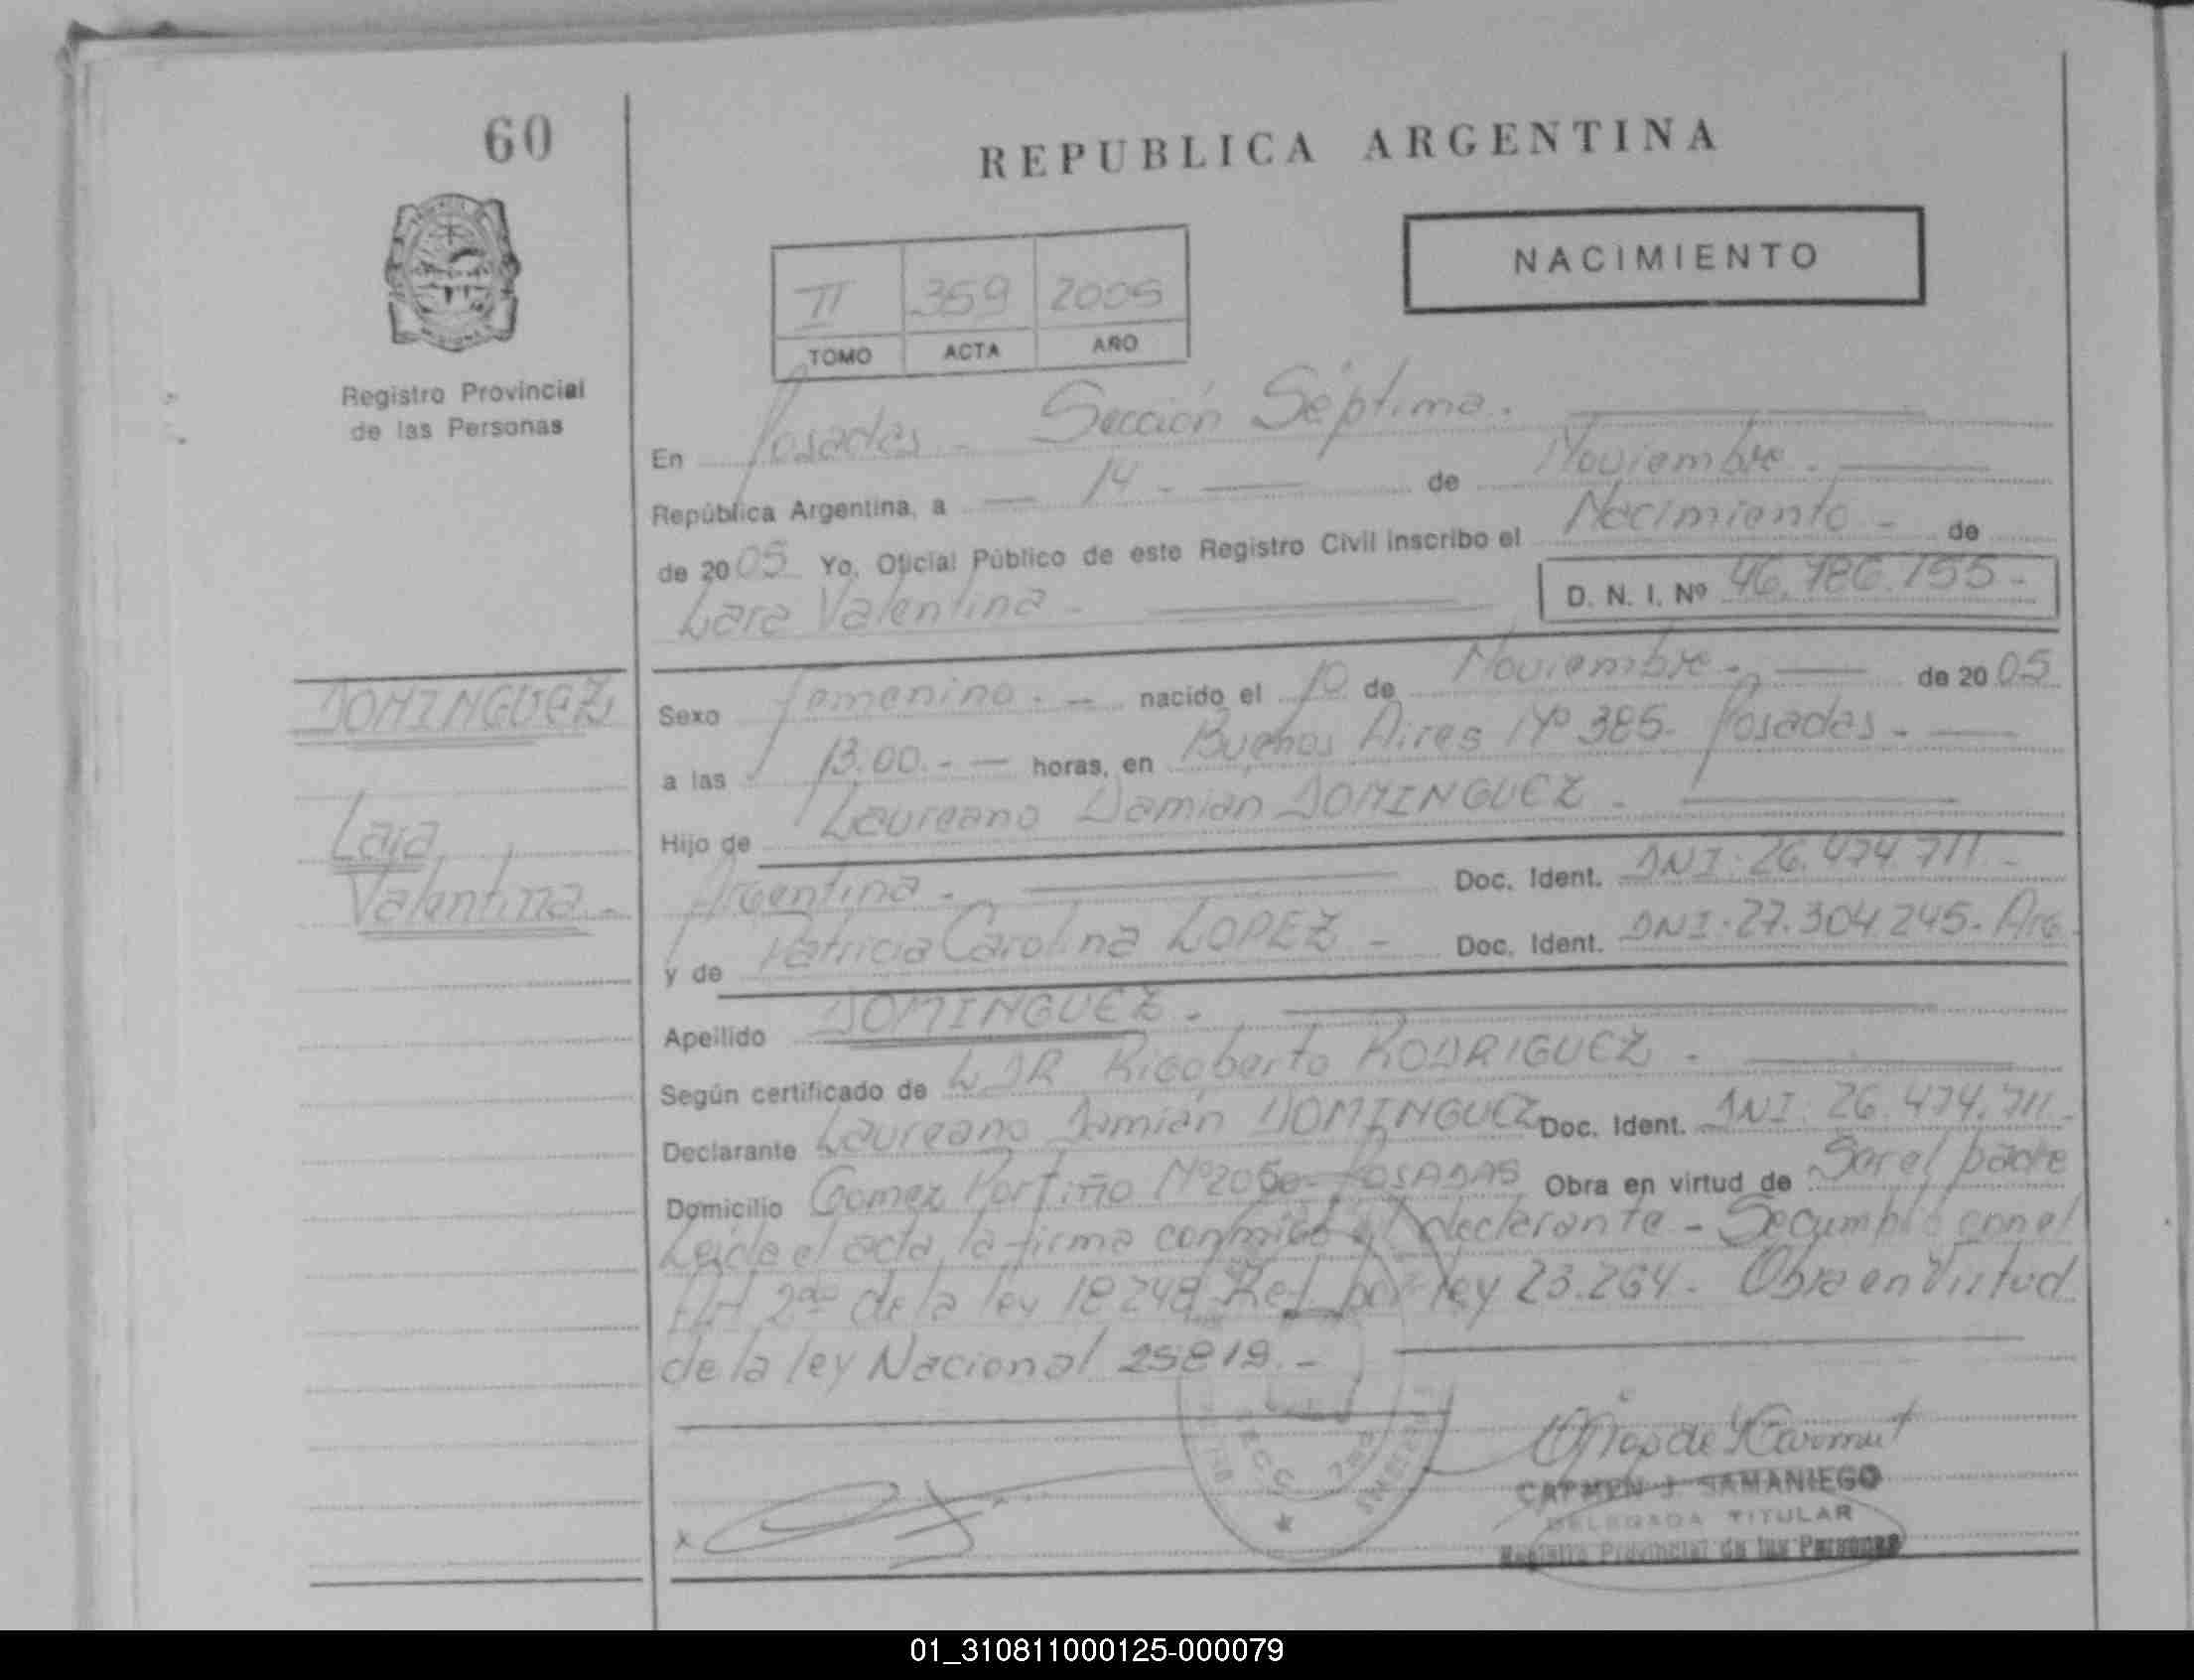 60
REPUBLICA ARGENTINA
NACIMIENTO
II 359 2005
TOMO ACTA AÑO
Registro Provincial
de las Personas
En Posadas - Sección Séptima.
República Argentina, a 14 - de Noviembre.
de 2005 Yo, Oficial Público de este Registro Civil inscribo el Nacimiento - de
Lara Valentina - D. N. I. Nº 46.786.155-
DOMINGUEZ
Lara
Valentina -
Sexo Femenino. - nacido el 10 de Noviembre - de 2005
a las 13.00.- - horas, en Buenos Aires Nº 385. Posadas. -
Hijo de Laureano Damián DOMINGUEZ -
Argentina. - Doc. Ident. DNI: 26.474.711 -
y de Patricia Carolina LOPEZ - Doc. Ident. DNI. 27.304.245. Arg.
Apellido DOMINGUEZ.
Según certificado de Rigoberto RODRIGUEZ -
Declarante Laureano Damián DOMINGUEZ Doc. Ident. DNI. 26.474.711 -
Domicilio Gomez Portiño Nº 2050- POSADAS Obra en virtud de Ser el padre
Leida el acta, la firma conmigo el declarante - Se cumplió con el
Art 2do de la ley 18248 Ref. por ley 23.264 - Obra en Virtud
de la ley Nacional 25819. -
x
CARMEN J. SAMANIEGO
DELEGADA TITULAR
Registro Provincial de las Personas
01_310811000125-000079